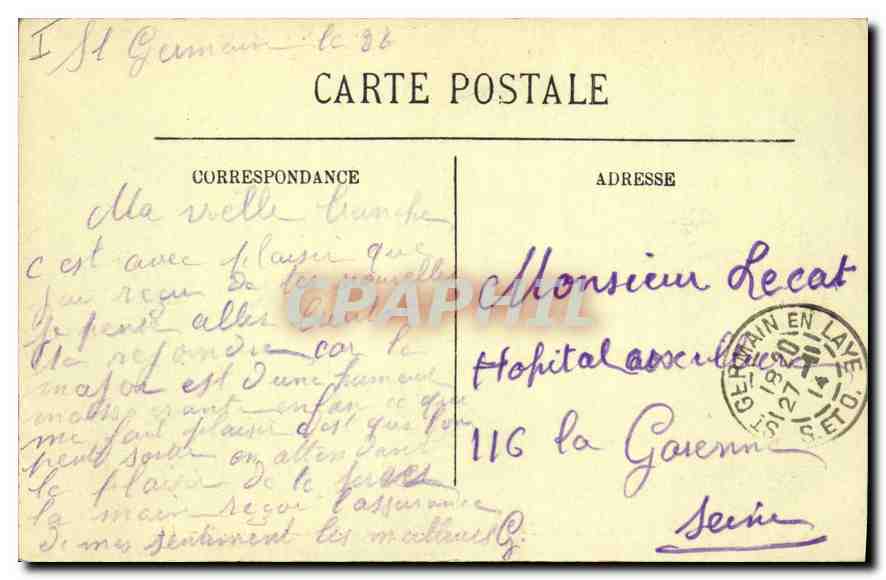 I
St Germain le 26
CARTE POSTALE
CORRESPONDANCE
ADRESSE
Ma vielle branche
c est avec plaisir que
j'ai reçu de tes nouvelles
je pense aller bientot
te rejoindre car le
major est d'une humeur
massacrante enfin ce qui
me fait plaisir c'est que l'on
peut sortir en attendant
le plaisir de te serrer
la main reçoi l'assurance
de mes sentiment les meilleurs G.
Monsieur Lecat
Hopital auxiliaire
116 la Garenne
Seine
ST GERMAIN EN LAYE
18 20
27 - 11
14
S. ET O.
CPAPHIL